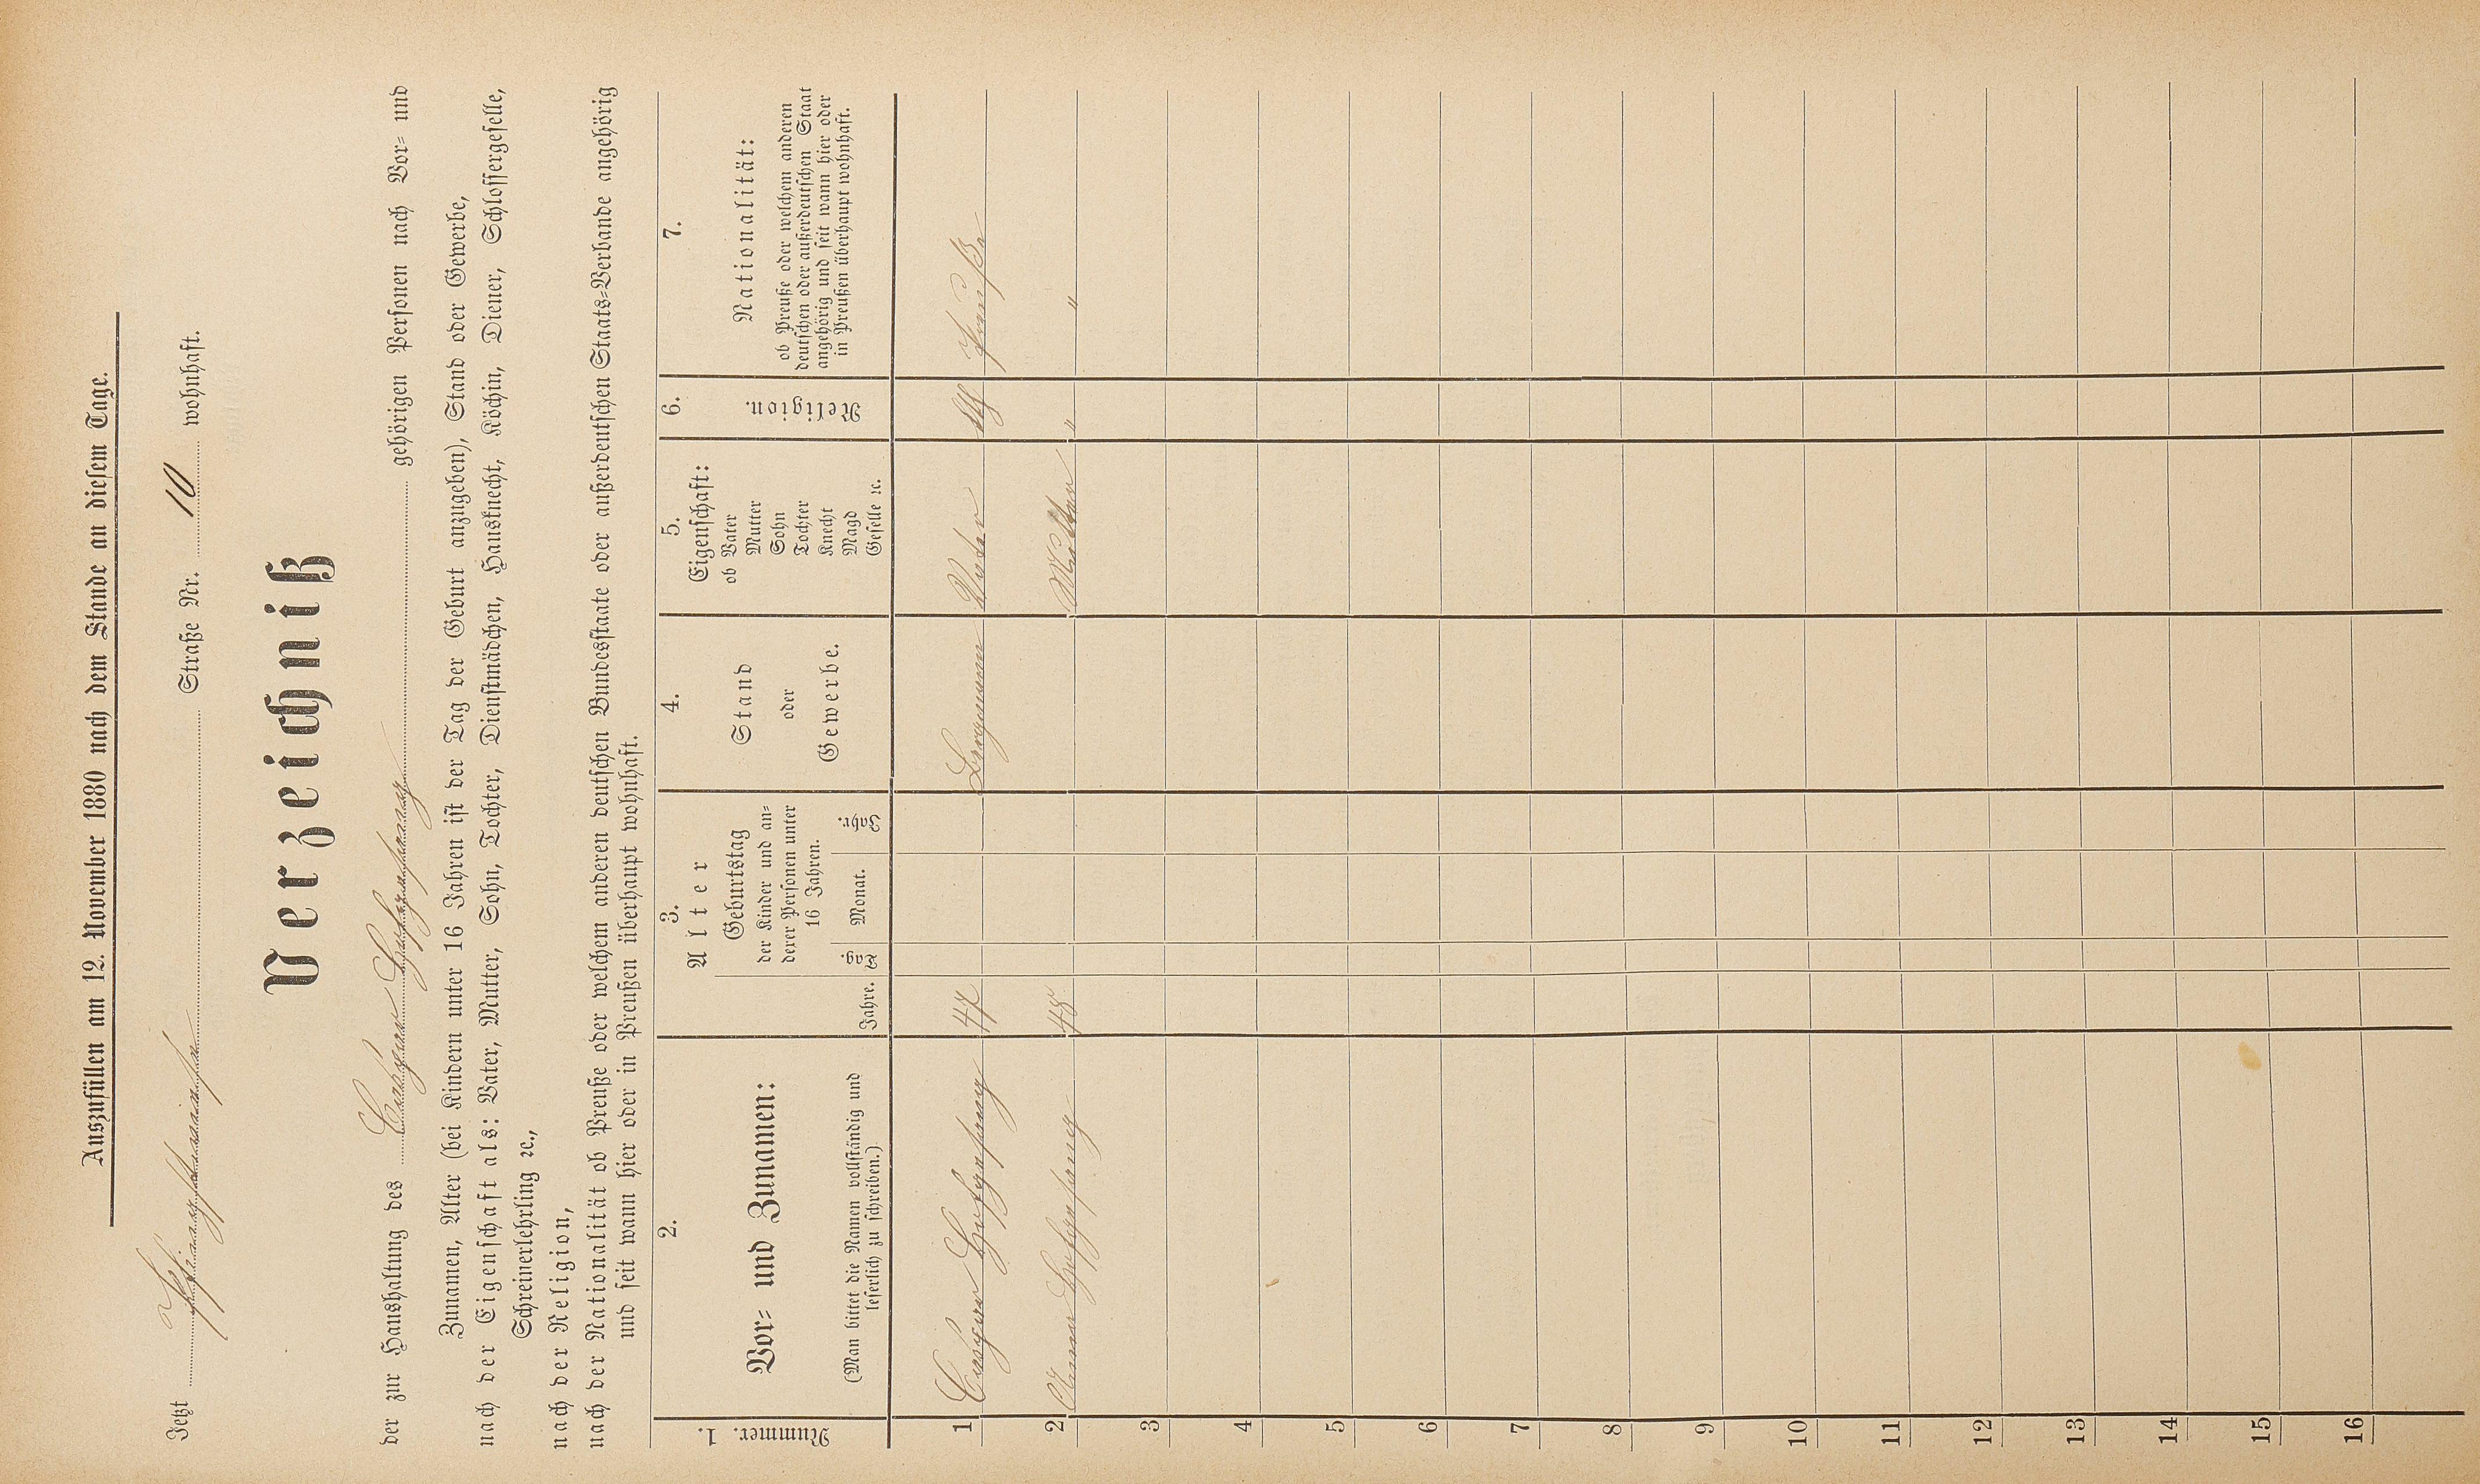 Auszufüllen am 12. November 1880 nach dem Stande an diesem Tage.
Jetzt Straße Nr. 10 wohnhaft.
Verzeichniß
der zur Haushaltung des gehörigen Personen nach Vor- und
Zunamen, Alter (bei Kindern unter 16 Jahren ist der Tag der Geburt anzugeben), Stand oder Gewerbe,
nach der Eigenschaft als: Vater, Mutter, Sohn, Tochter, Dienstmädchen, Hausknecht, Köchin, Diener, Schlossergeselle,
Schreinerlehrling ꝛc.,
nach der Religion,
nach der Nationalität ob Preuße oder welchem anderen deutschen Bundesstaate oder außerdeutschen Staats-Verbande angehörig
und seit wann hier oder in Preußen überhaupt wohnhaft.
1.
Nummer.
2.
Vor- und Zunamen:
(Man bittet die Namen vollständig und
leserlich zu schreiben.)
3.
Alter
Jahre.
Geburtstag
der Kinder und an-
derer Personen unter
16 Jahren.
Tag. Monat. Jahr.
4.
Stand
oder
Gewerbe.
5.
Eigenschaft:
ob Vater
Mutter
Sohn
Tochter
Knecht
Magd
Geselle ꝛc.
6.
Religion.
7.
Nationalität:
ob Preuße oder welchem anderen
deutschen oder außerdeutschen Staat
angehörig und seit wann hier oder
in Preußen überhaupt wohnhaft.
1 47 Bergmann Vater Preuße
2 Anna 48 Mutter " "
3
4
5
6
7
8
9
10
11
12
13
14
15
16